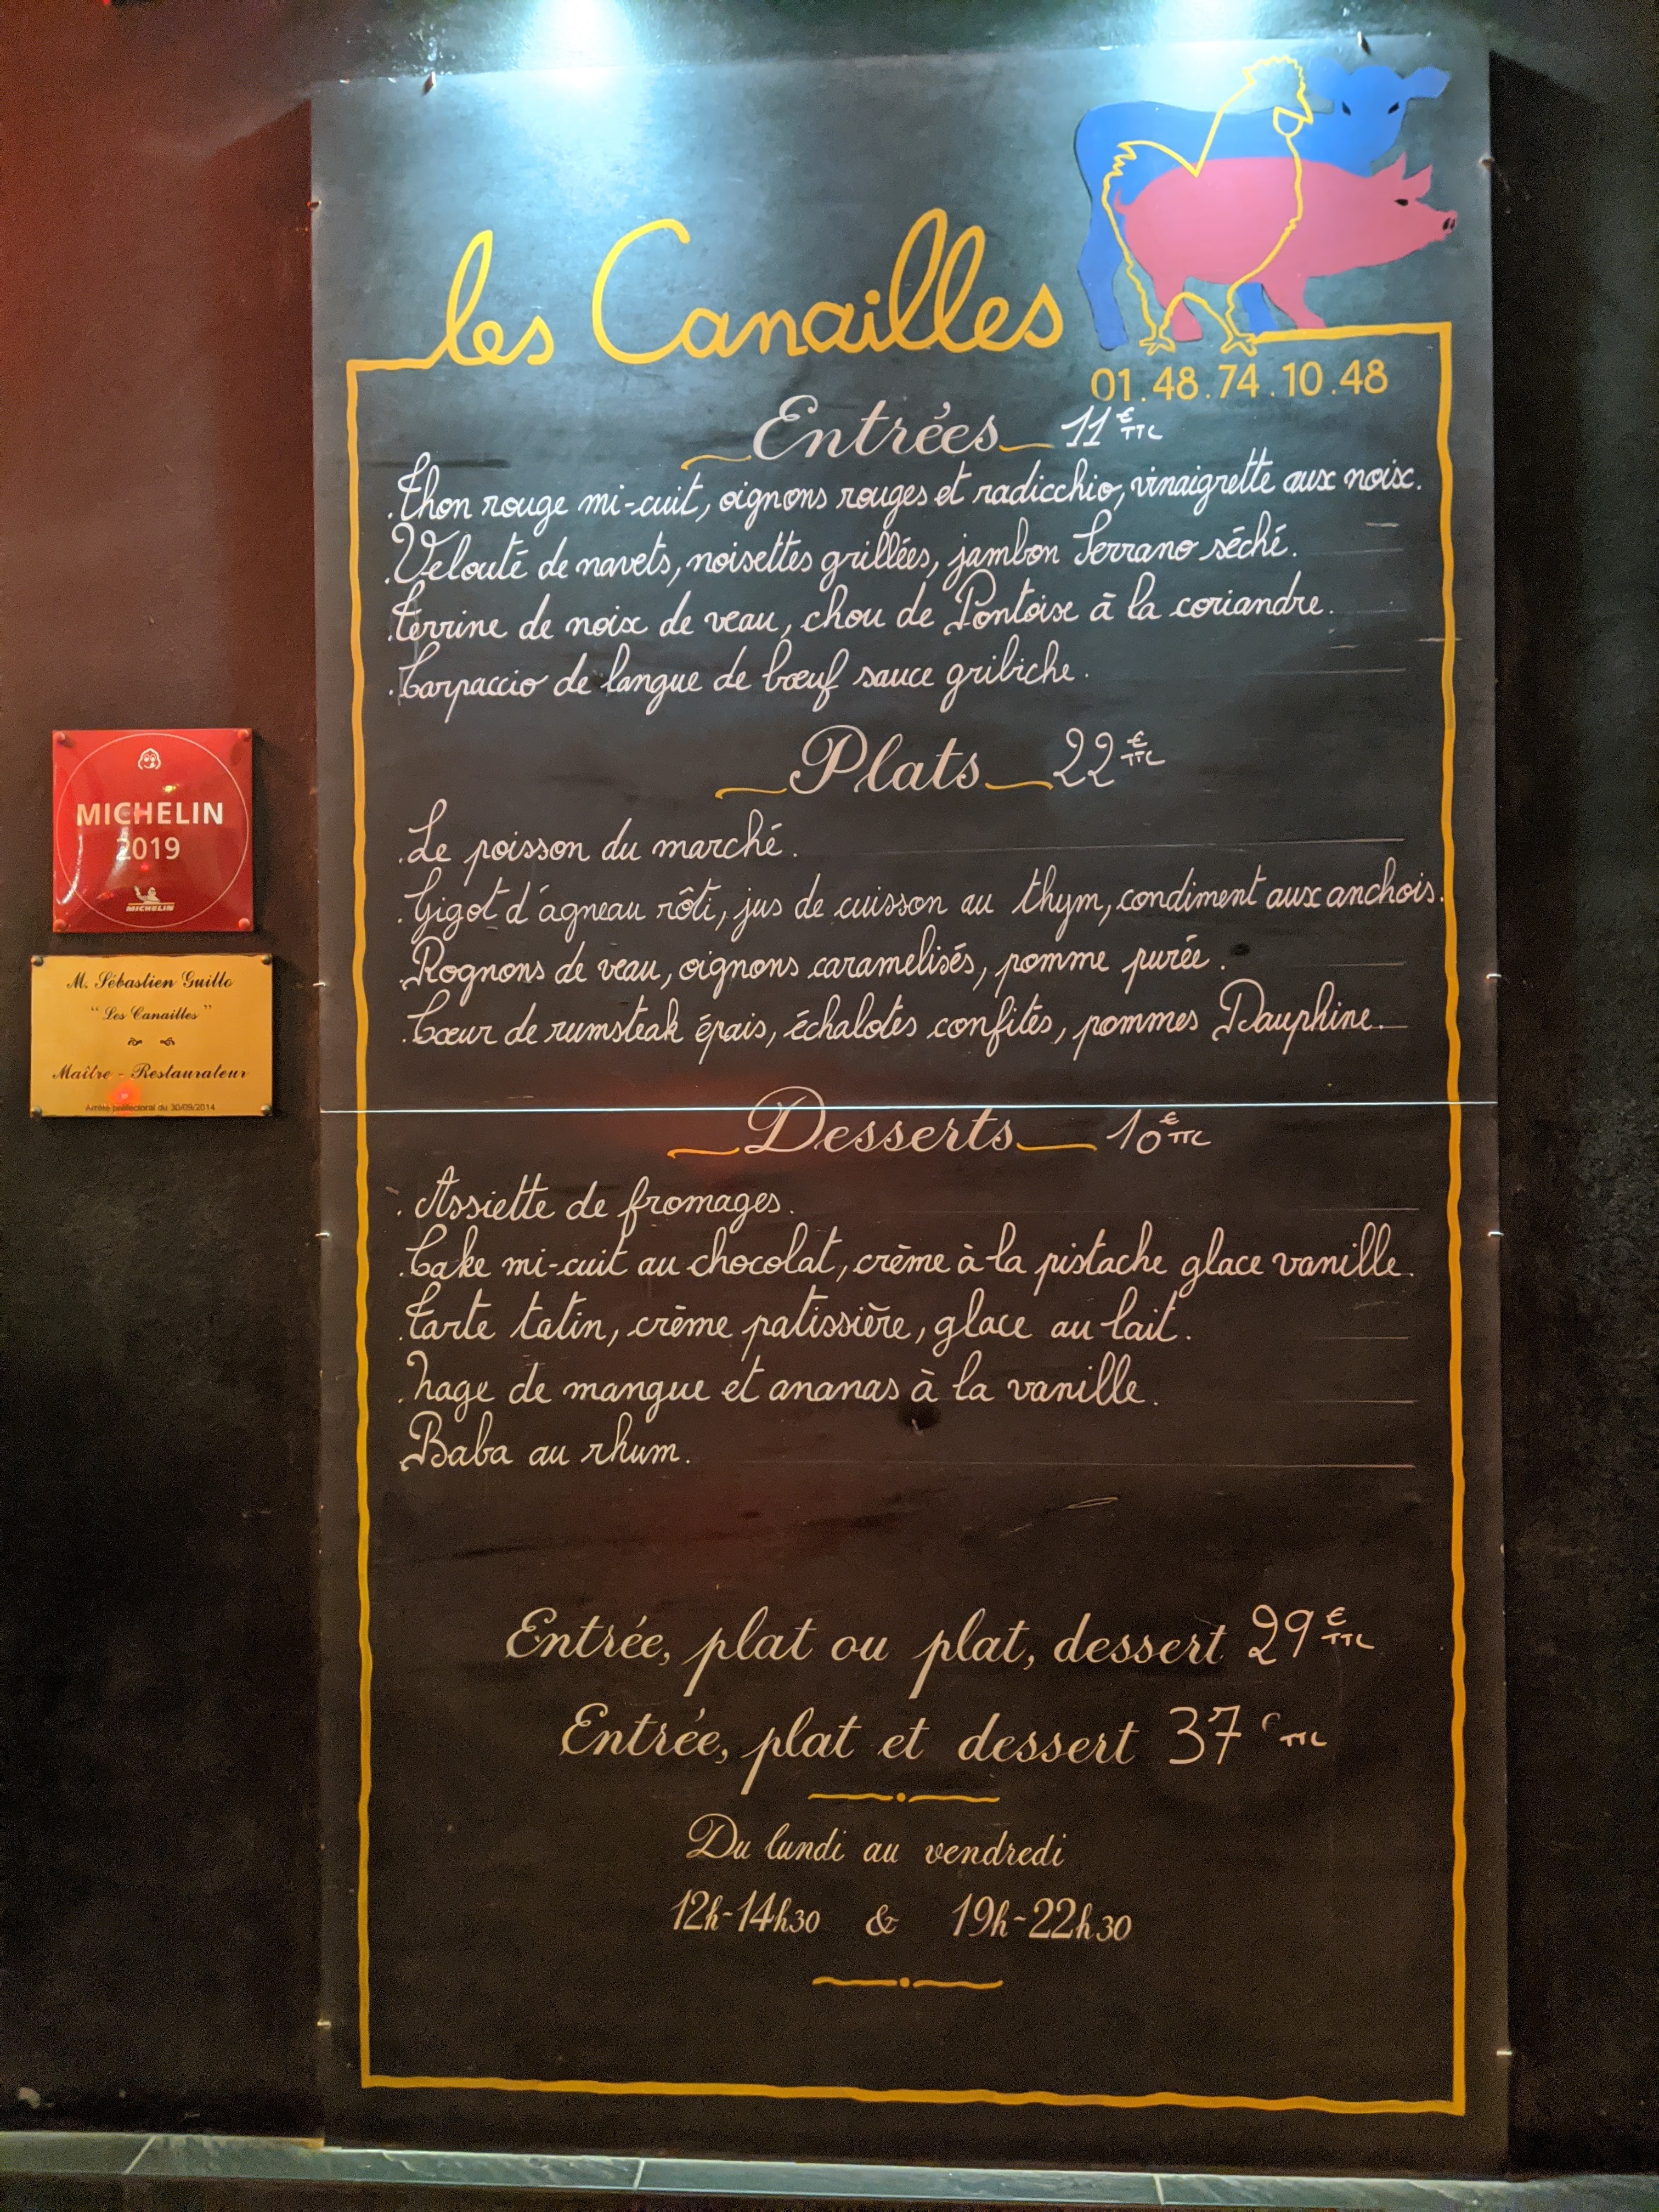 les Canailles
01.48.74.10.48
Entrées 11€ TTC
.Thon rouge mi-cuit, oignons rouges et radicchio, vinaigrette aux noix.
.Velouté de navets, noisettes grillées, jambon Serrano séché.
.Terrine de noix de veau, chou de Pontoise à la coriandre.
.Carpaccio de langue de bœuf sauce gribiche.
Plats 22€ TTC
.Le poisson du marché.
.Gigot d'agneau rôti, jus de cuisson au thym, condiment aux anchois.
.Rognons de veau, oignons caramelisés, pomme purée.
.Cœur de rumsteak épais, échalotes confites, pommes Dauphine.
Desserts 10€ TTC
.Assiette de fromages.
.Cake mi-cuit au chocolat, crème à la pistache glace vanille.
.Tarte tatin, crème patissière, glace au lait.
.Nage de mangue et ananas à la vanille.
.Baba au rhum.
Entrée, plat ou plat, dessert 29€ TTC
Entrée, plat et dessert 37€ TTC
Du lundi au vendredi
12h-14h30 & 19h-22h30
MICHELIN
2019
MICHELIN
M. Sébastien Guillo
"Les Canailles"
Maître - Restaurateur
Arrêté préfectoral du 30/09/2014